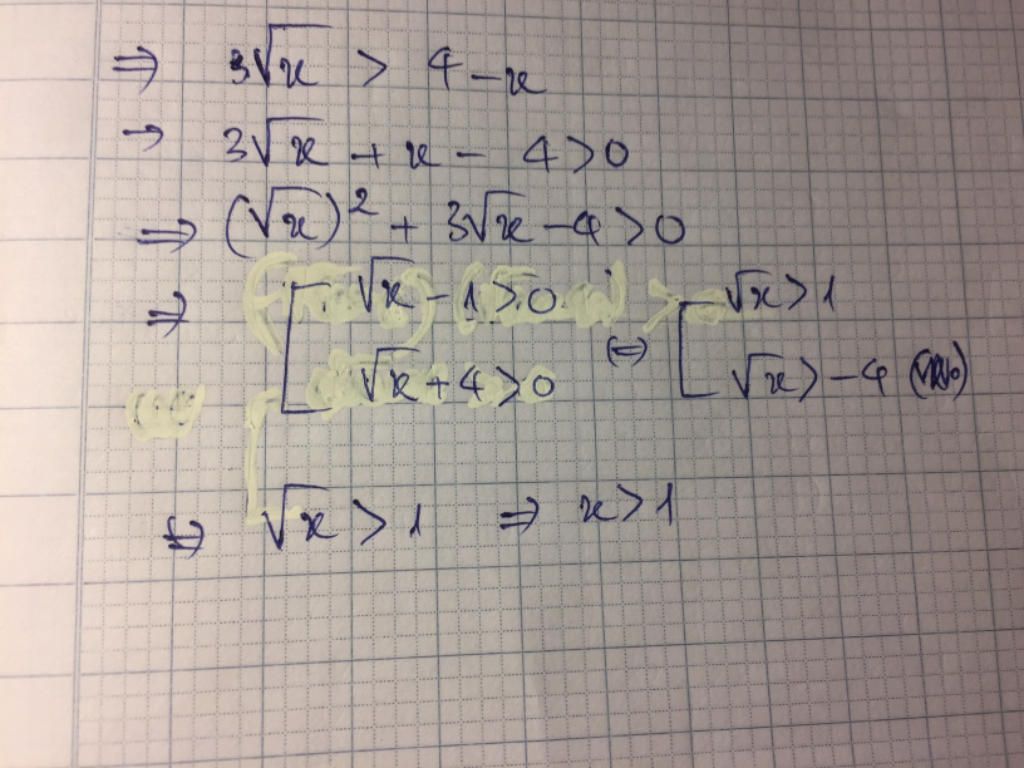 ⇒ 3√x > 4 - x
→ 3√x + x - 4 > 0
⇒ (√x)² + 3√x - 4 > 0
⇒ [ √x - 1 > 0 ⇔ [ √x > 1
√x + 4 > 0 √x > -4
⇔ √x > 1 ⇒ x > 1